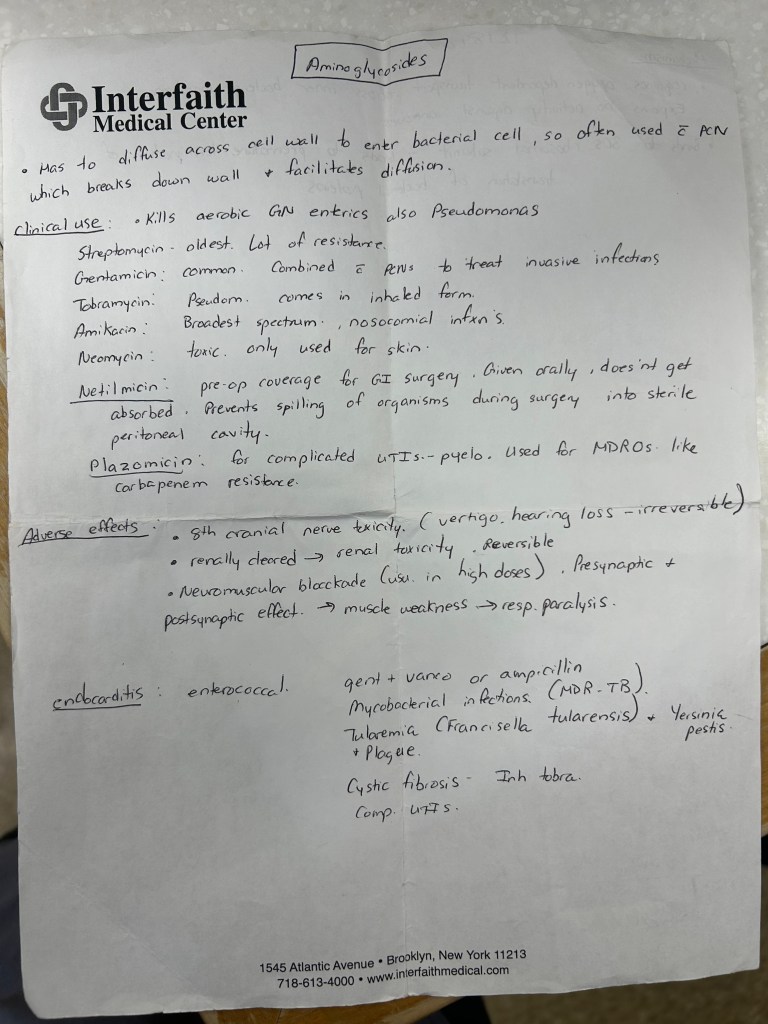 Aminoglycosides
Interfaith
Medical Center
• Has to diffuse across cell wall to enter bacterial cell, so often used c̄ PCN
which breaks down wall + facilitates diffusion.
Clinical use: • Kills aerobic GN enterics also Pseudomonas
Streptomycin - oldest. Lot of resistance.
Gentamicin: common. Combined c̄ PCNs to treat invasive infections
Tobramycin: Pseudom. comes in inhaled form.
Amikacin: Broadest spectrum., nosocomial infxn's.
Neomycin: toxic. only used for skin.
Netilmicin: pre-op coverage for GI surgery. Given orally, does'nt get
absorbed. Prevents spilling of organisms during surgery into sterile
peritoneal cavity.
Plazomicin: for complicated UTIs.-pyelo. Used for MDROs. like
carbapenem resistance.
Adverse effects: • 8th cranial nerve toxicity. (vertigo. hearing loss - irreversible)
• renally cleared → renal toxicity. Reversible
• Neuromuscular bloackade (usu. in high doses). Presynaptic +
postsynaptic effect. → muscle weakness → resp. paralysis.
endocarditis: enterococcal. gent + vanco or ampicillin
Mycobacterial infections. (MDR-TB).
Tularemia (Francisella tularensis) + Yersinia
pestis.
+ Plague.
Cystic fibrosis - Inh tobra.
Comp. UTIs.
1545 Atlantic Avenue • Brooklyn, New York 11213
718-613-4000 • www.interfaithmedical.com